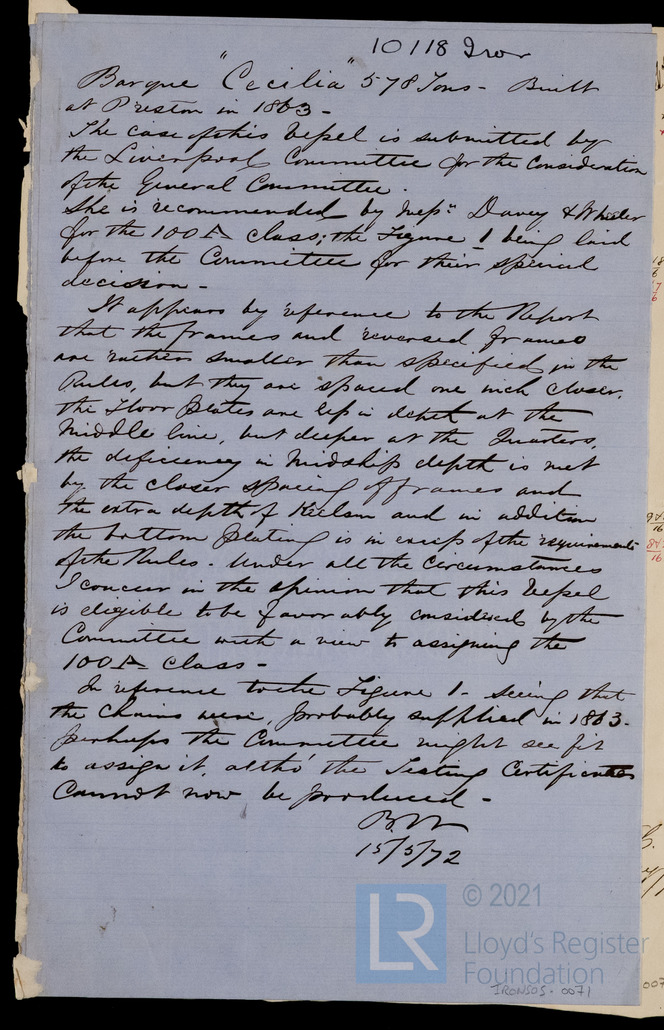 10118 Iron
Barque "Cecilia" 578 Tons - Built
at Preston in 1863 -
The case of this Vessel is submitted by
the Liverpool Committee for the Consideration
of the General Committee.
She is recommended by Messrs Davey & Wheeler
for the 100 A class; the Figure 1 being laid
before the Committee for their special
decision -
It appears by reference to the Report
that the frames and reversed frames
are rather smaller than specified in the
Rules, but they are spaced one inch closer.
the Floor plates are less in depth at the
Middle line, but deeper at the Quarters,
the deficiency in Midship depth is met
by the closer spacing of frames and
the extra depth of Keelson and in addition
the bottom plating is in excess of the requirements
of the Rules - Under all the circumstances
I concur in the opinion that this Vessel
is elegible to be favorably considered by the
Committee with a view to assigning the
100 A Class -
In reference to the Figure 1 - seeing that
the Chains were, probably supplied in 1863 -
perhaps the Committee might see fit
to assign it, altho' the Testing Certificates
Cannot now be produced -
15/5/72
LR
© 2021
Lloyd's Register
Foundation
IRONSOS - 0071